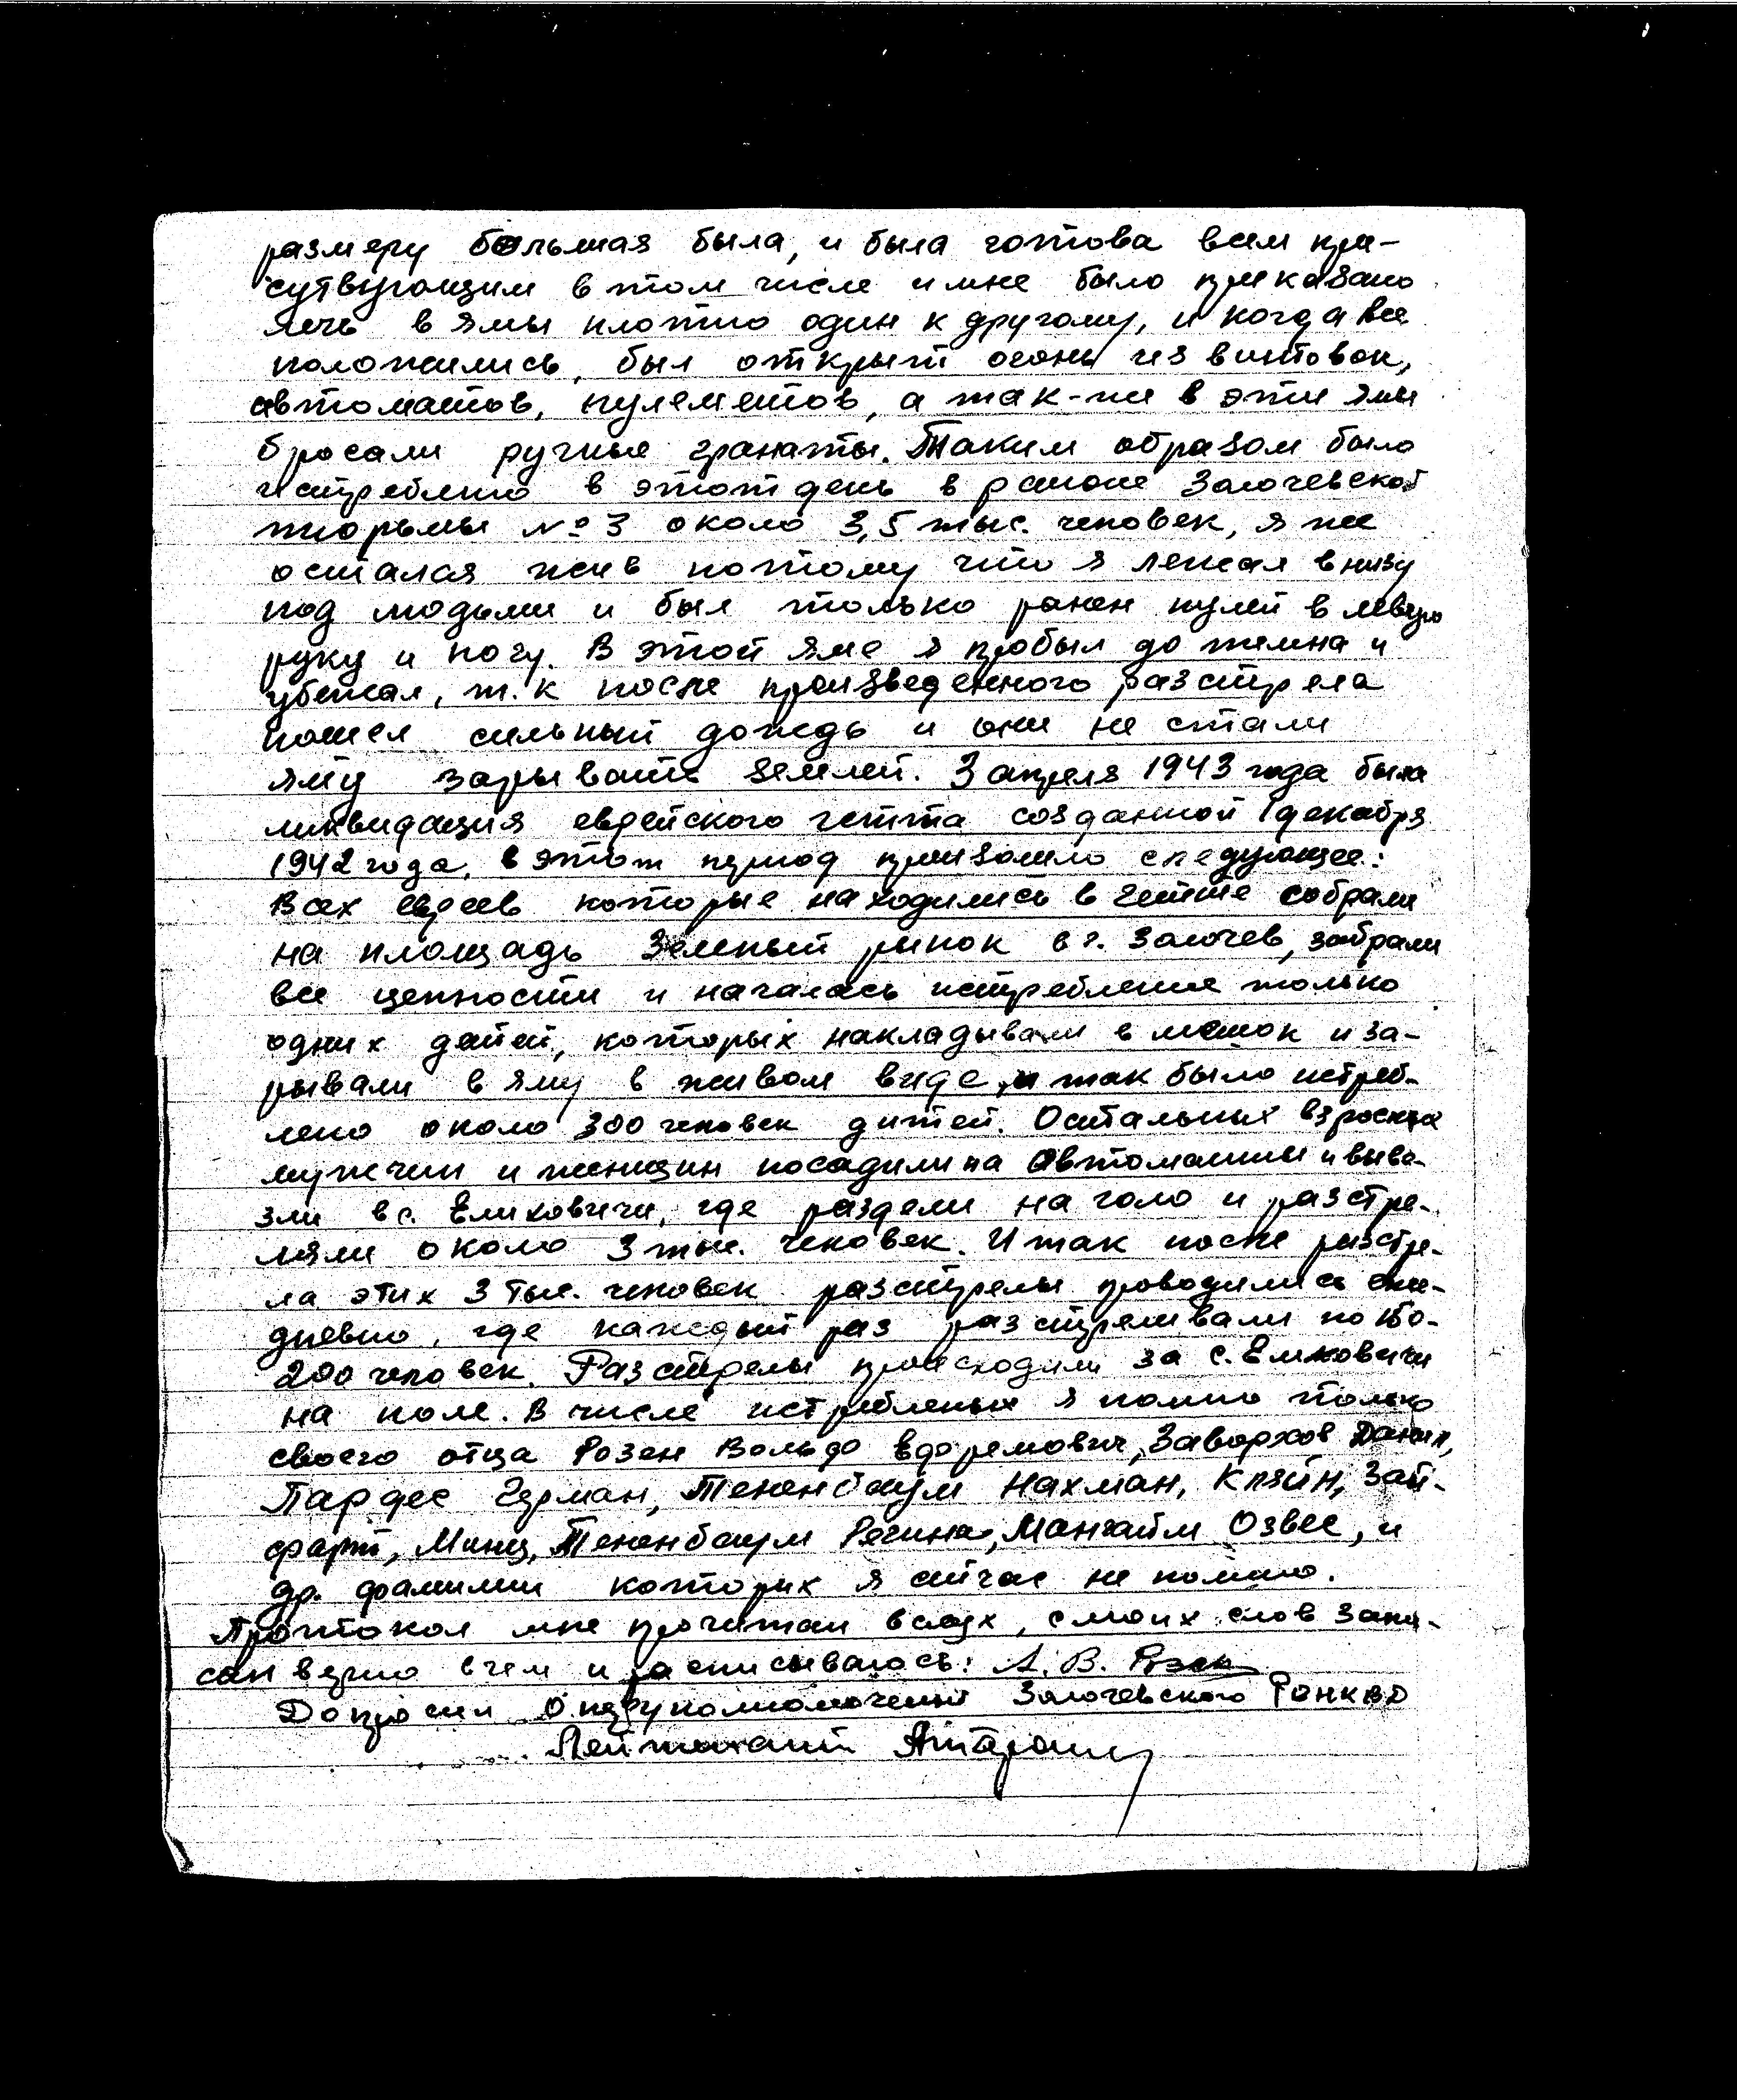 размеру большая была, и была готова всем при-
сутвующим в том числе и мне было приказано
лечь в ямы плотно один к другому, и когда все
положились, был открыт огонь из винтовок,
автоматов, пулеметов, а так-же в эти ямы
бросали ручные гранаты. Таким образом было
истреблено в этот день в районе Золочевской
тюрьмы № 3 около 3,5 тыс. человек, я же
осталая жив потому что я лежал внизу
под людьми и был только ранен пулей в левую
руку и ногу. В этой яме я пробыл до темна и
убежал, т.к после произведенного разстрела
пошел сильный дождь и они не стали
яму зарывать землей. 3 апреля 1943 года была
ликвидация еврейского гетта созданной 1 декабря
1942 года, в этот период произошло следующее:
Всех евреев которые находились в гетте собрали
на площадь Зеленый рынок в г. Золочев, забрали
все ценности и началась истребление только
одних детей, которых накладывали в мешок и за-
рывали в яму в живом виде, и так было истреб-
лено около 300 человек дитей. Остальных взрослых
мужчин и женщин посадили на автомашины и выве-
зли в с. Елиховичи, где раздели на голо и разстре-
ляли около 3 тыс. человек. И так после разстре-
ла этих 3 тыс. человек разстрелы проводились еже-
дневно, где каждый раз разстреливали по 150-
200 человек. Разстрелы происходили за с. Елиховичи
на поле. В числе истребленых я помню только
своего отца Розен Вольдо Едоремович, Заворхов Данил,
Пардес Герман, Тененбаум Нахман, Кляйн, Зай-
фарт, Минц, Тененбаум Регина, Мангайм Озвес, и
др. фамилии которих я сичас не помню.
Протокол мне прочитан вслух, с моих слов запи-
сан верно в чем и расписываюсь: А. В. Розен
Допросил Оперуполномоченый Золочевского РОНКВД
Лейтенант